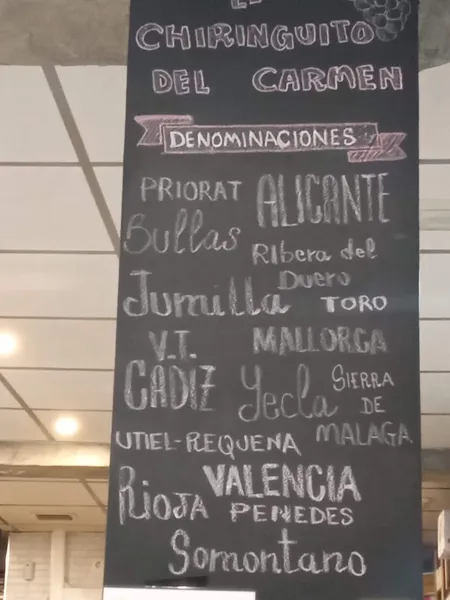 EL
CHIRINGUITO
DEL CARMEN
DENOMINACIONES
PRIORAT ALICANTE
Bullas Ribera del
Duero
Jumilla TORO
V.T. MALLORCA
CADIZ Yecla SIERRA
DE
UTIEL-REQUENA MALAGA
VALENCIA
RiOJA PENEDES
Somontano